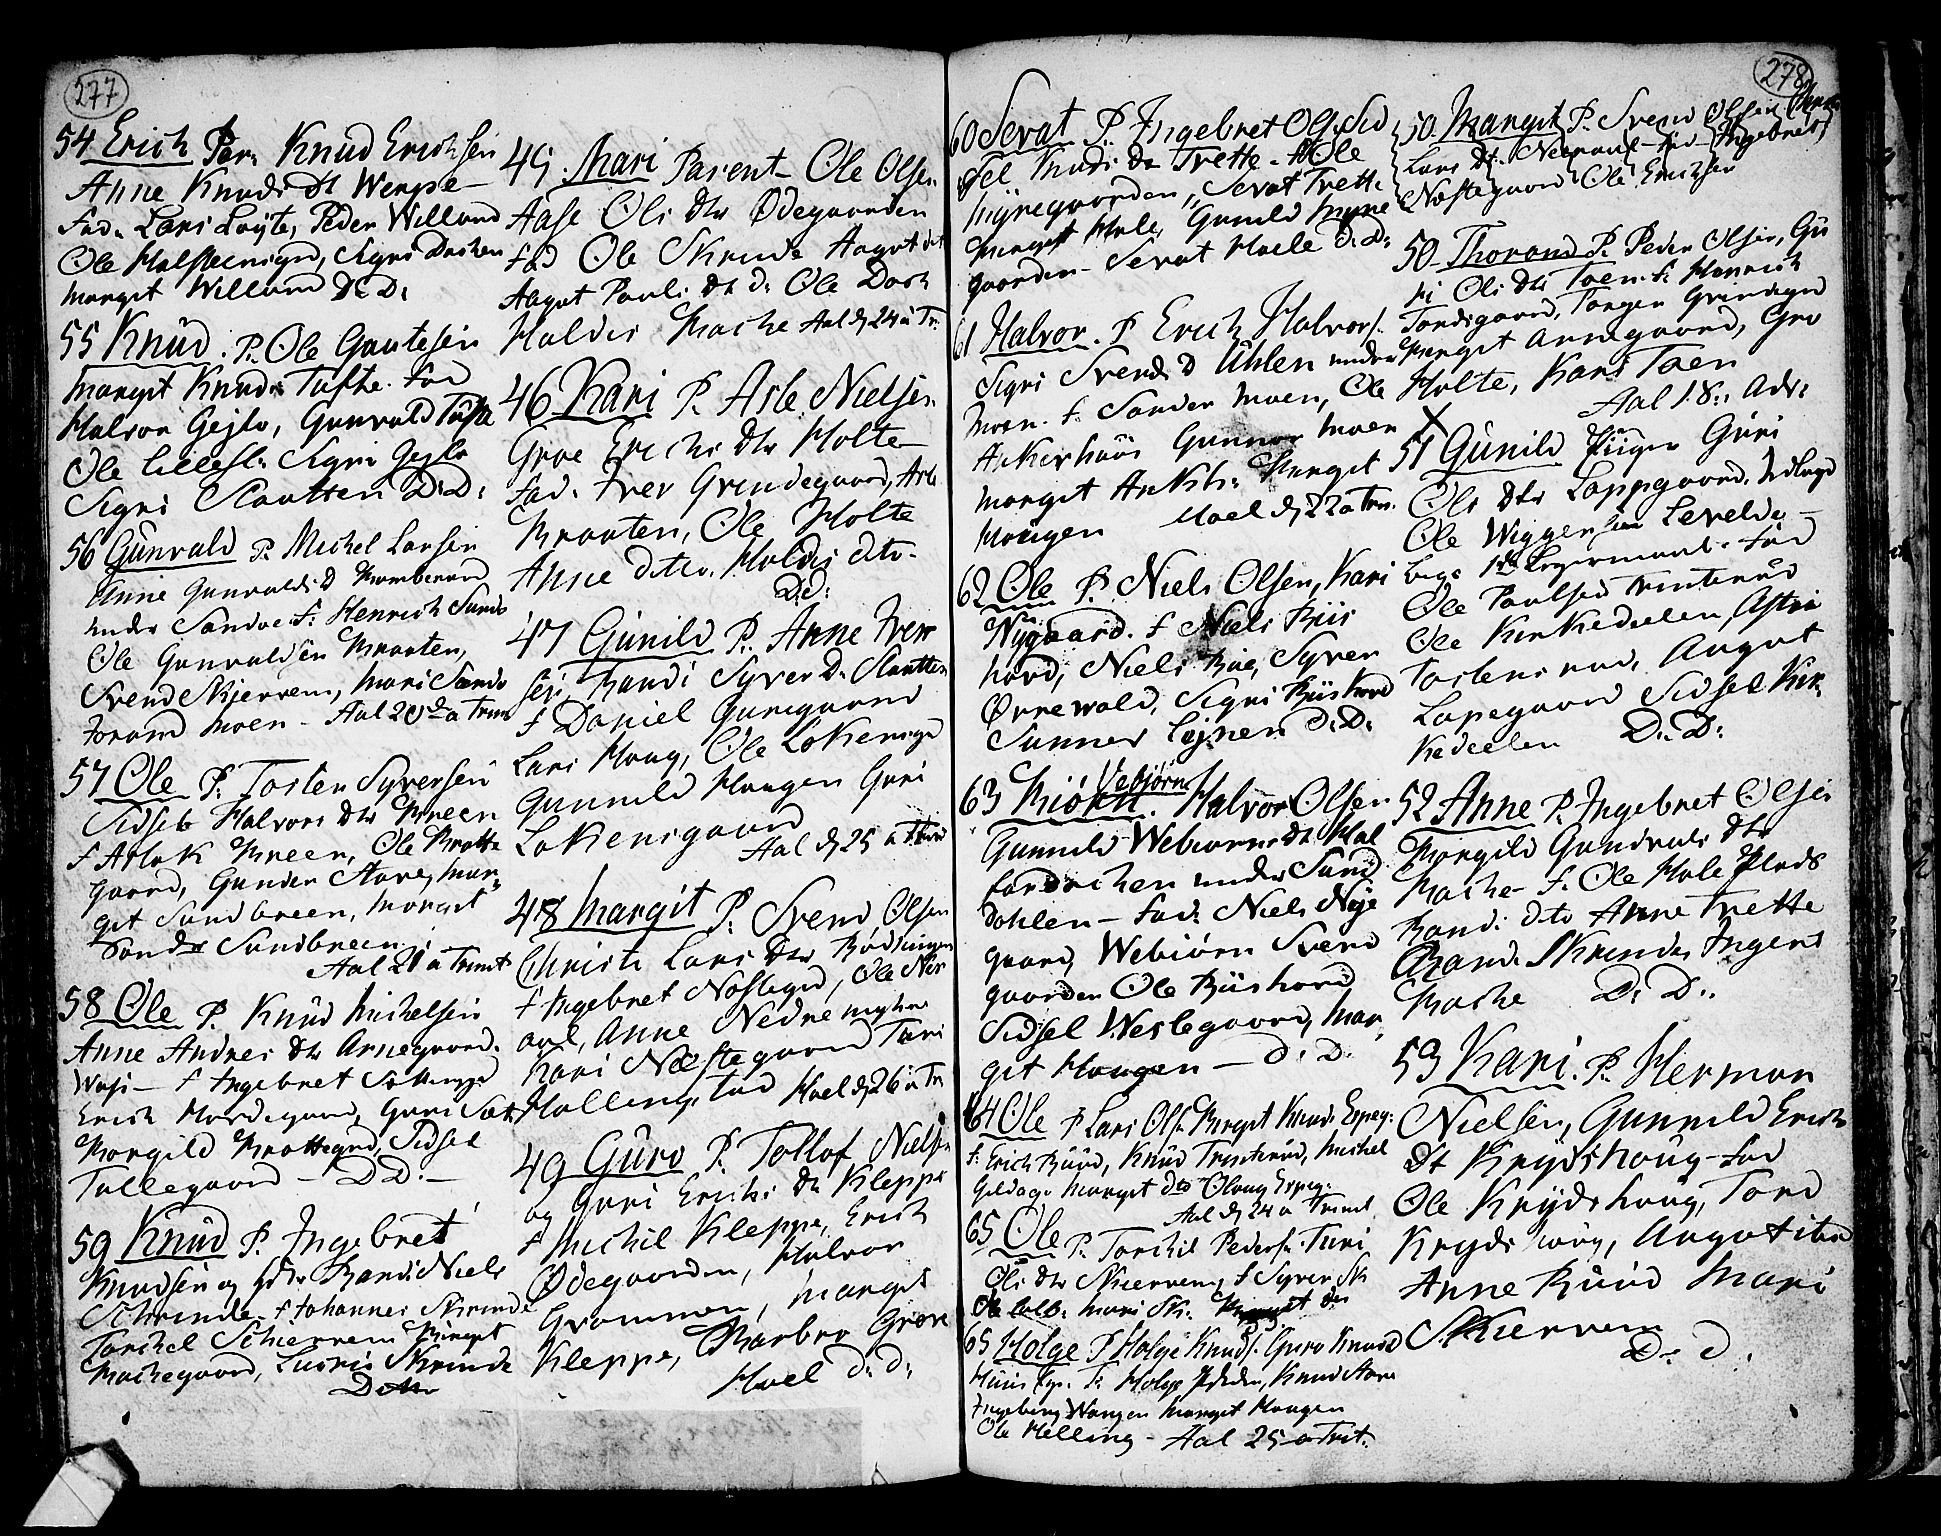 277
54 Erich Par: Knud Erichsen
Anne Knuds dt Wenpe
Fad. Lars Løyte, Peder Willand
Ole Halsteensgd, Sigri Dachen
Marget Willand D: D:
55 Knud. P. Ole Gautesen
Marget Knuds Tufte. Fad
Halvor Gejlo, Gunvald Tufte
Ole Lillesl: Sigri Gejlo
Sigri Slaatten D: D:
56 Gunvald P. Michel Larsen
Anne Gunvalds D
under Sandoe F: Henrich Sando
Ole Gunvaldsen Braaten,
Svend Skjervem, Mari Sando
Torand Moen - Aal 20de a Trin
57 Ole P. Tosten Syversen
Sidsele Halvors dtr Breen
F Aslak Breen, Ole Brotte
gaard, Gunder Aare, Mar,
get Sundbreen, Marget
Sundbreen
Aal 21 a Trinit
58 Ole P. Knud Michelsen
Anne Andres dtr Arnegaard.
F Ingebret
Erich Hordegaard, Guri Sæt
Borgild Brottegrd, Sidsel
Tollegaard - D D. -
59 Knud P. Ingebret
Knudsen og Randi Niels
Schrinde, F Johannes Skrinde
Torchel Schierrem Birget
Bachegaard, Skrinde
45. Mari Parent Ole Olsen
Aase Ols dtr Ødegaarden
Fad Ole Skrinde Aagot dt
Aagot Pouls dt d: Ole Dock
Haldis Bache Aal d 24 a Tr:
46 Kari P. Asle Nielsen
Groe Erichs dtr Holte
Fad. Iver Grindegaard, Asle
Braaten, Ole Holte
Anne dito. Haldis dito.
D: d:
47 Gunild P. Anne Iver
sen, Randi Syver D. Slaatten
F Daniel Gunegaard
Lars Houg, Ole Lokensgd
Gunnild Haugen Guri
Lokensgaard
Aal d 25 a Trin
48 Margit P. Svend Olsen
Christi Lars dtr Rødningen
F Ingebret Nøstegrd, Ole Nir
aal, Anne Nedre myhre
Kari Næstegaard Turi
Hallingstad Hoel d 26 a Tr
49 Guro P. Tollof Nielsen
og Guri Erichs dtr Kleppe
F Michil Kleppe, Erich
Ødegaarden, Halvor
Grommen, Marget
Kleppe, Barbro Groe
Hoel d: d:
278
60 Sevat P. Ingebret Ols: Sid
sel Knuds dtr Trette. F Ole
Myregaarden, Sevat Trette
Birget Hole, Gunild Myre
gaarden - Sevat Hoele D: D:
61 Halvor. P Erich Halvors.
Sigri Svends D Uhlen under
Moen. F. Sander Moen, Ole
Ankerhuus Gunnor Moen
Marget Ankh: Birget
Hougen Hoel d 22 a Trin.
62 Ole P Niels Olsen, Kari
Nygaard. F Niels Riis
hord, Niels Rue, Syver
Ørnevold, Sigri Riishord
Sunnev Lojnen D: D:
Vebjørn
63 Biørn. Halvor Olsen
Gunnild Webiørns dtr Hal
fardochen under Sund
dohlen - Fad: Niels Nye
gaard, Webiørn Svend
gaarden Ole Riishord
Sidsel Weslegaard, Mar,
get Haugen - d. D.
64 Ole P Lars Ols. Birget Knuds Espeg:
F: Erich Ruud, Knud Trinterud, Michel
Geldage Marget dto Olaug Espeg:
Aal d 24 a Trinit
65 Ole P. Torchil Peders. Turi
Ols dtr Skierrem, F Syver Sk
Mari Sk.
65 Holge P Holge Knuds. Guro Knuds
F: Holge Knud Aare
Ingeborg Wangen Marget Haugen
Ole Helling - Aal 25 a Trit.
50. Margit P. Svend Olsen
Lars dt. Nieraal - Fad - Ingebret
Nøstegaard Ole Erichsen
50 Thorand P. Peder Olsen, Gu
ri Ols dtr Toen. F. Henrich
Tordsgaard, Torger Grindegrd
Birget Arnegaard, Gro
Holte, Kari Toen
Aal 18: Adv:
X
51 Gunild Piigen Guri
Ols dtr Loppegaard. Udlagd
Ole Wiggensen Levelde
begs 1te Leyermaal. Fad
Ole Paulsen Trinterud
Ole Kirkedeelen, Astri
Tostensrud, Aagot
Lopegaard Sidsel Kir,
kedeelen D: D:
52 Anne P. Ingebret Olsen
Borgild Gundvals dtr
Bache - F. Ole Hole Plads
Rand: dito Anne Trette
Rand. Skrinde, Ingers
Bache D: D:
53 Kari. P. Herman
Nielsen, Gunnild Erich
dt Krydshoug - Fad
Ole Krydshoug, Tord
Krydshoug, Aagot ibd
Anne Ruud Mari
Skierrem
D: d: